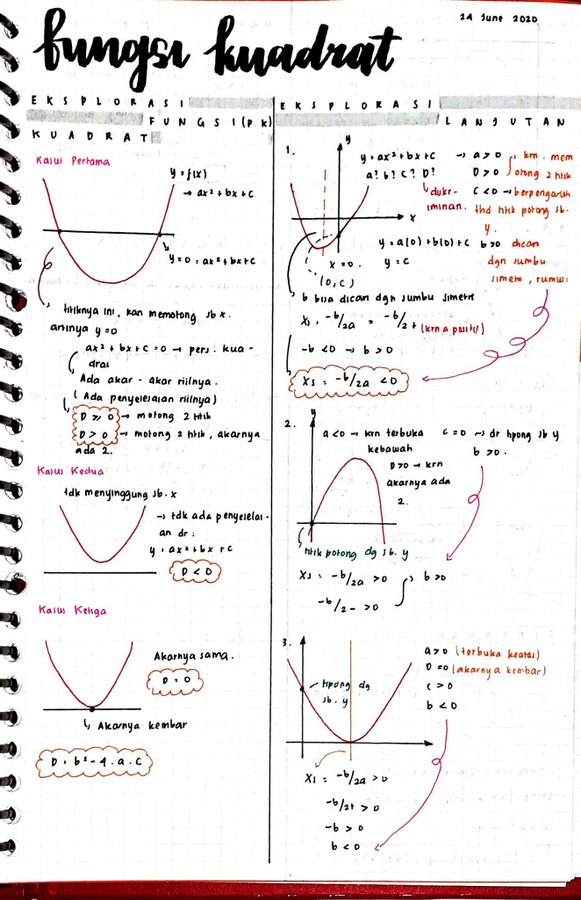 24 June 2020
fungsi kuadrat
EKSPLORASI
FUNGSI(PK)
KUADRAT
Kasus Pertama
y = f(x)
→ ax² + bx + c
y = 0 = ax² + bx + c
titiknya ini, kan memotong sb x.
artinya y = 0
ax² + bx + c = 0 → pers. kua-
drat
Ada akar-akar riilnya.
(Ada penyelesaian riilnya)
D ≥ 0 → motong 2 titik
D > 0 → motong 2 titik, akarnya
ada 2.
Kasus Kedua
tdk menyinggung sb. x
→ tdk ada penyelesai-
an dr:
y = ax² + bx + c
D < 0
Kasus Ketiga
Akarnya sama.
D = 0
↳ Akarnya kembar
D = b² - 4.a.c
EKSPLORASI
LANJUTAN
1.
y
x
y = ax² + bx + c
a? b? c? D?
↳ diskr-
iminan.
x = 0.
(0, c)
y = a(0) + b(0) + c
y = c
→ a > 0
D > 0
krn. mem
otong 2 titik
c < 0 → berpengaruh
thd titik potong sb.
y.
b > 0 dicari
dgn sumbu
simetri, rumus:
b bisa dicari dgn sumbu simetri
Xs = -b/2a = -b/2+ (krn a positif)
-b < 0 → b > 0
Xs = -b/2a < 0
2.
y
a < 0 → krn terbuka
kebawah
D > 0 → krn
akarnya ada
2.
c = 0 → dr tpong sb y
b > 0.
titik potong dg sb. y
Xs = -b/2a > 0
-b/2- > 0
b > 0
3.
tpong dg
sb. y
a > 0 (terbuka keatas)
D = 0 (akarnya kembar)
c > 0
b < 0
Xs = -b/2a > 0
-b/2+ > 0
-b > 0
b < 0